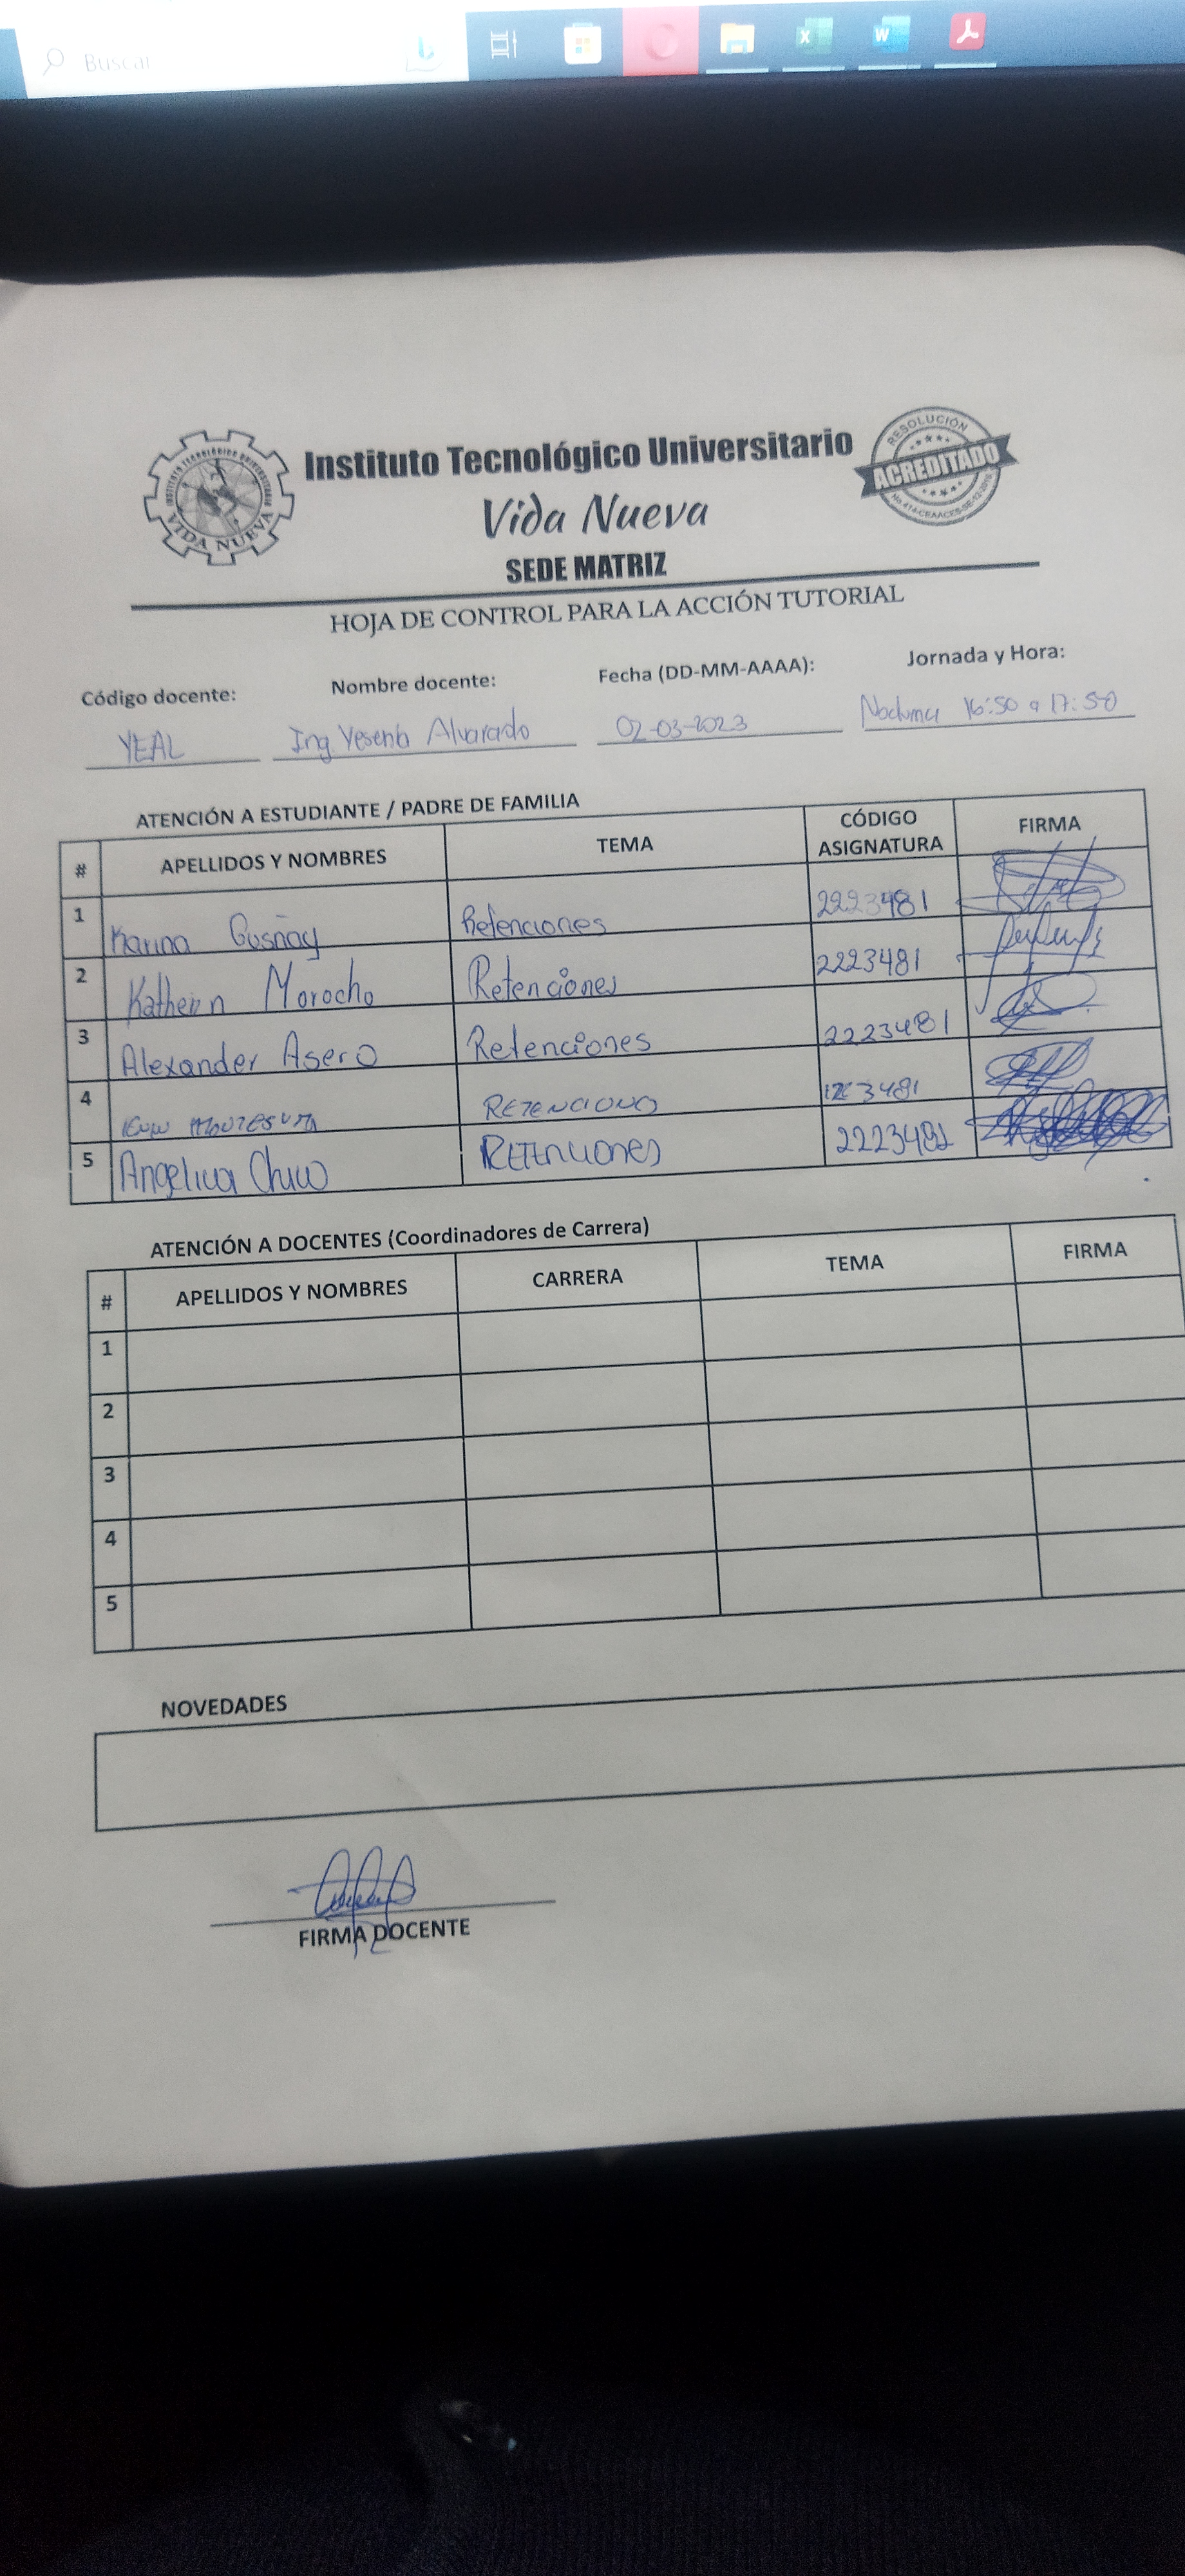 Buscar
Instituto Tecnológico Universitario
Vida Nueva
SEDE MATRIZ
INSTITUTO TECNOLÓGICO UNIVERSITARIO
VIDA NUEVA
RESOLUCIÓN
ACREDITADO
HOJA DE CONTROL PARA LA ACCIÓN TUTORIAL
Código docente: Nombre docente: Fecha (DD-MM-AAAA): Jornada y Hora:
YEAL Ing. Yesenia Alvarado 02-03-2023 Nocturna 16:50 a 17:50
ATENCIÓN A ESTUDIANTE / PADRE DE FAMILIA
# APELLIDOS Y NOMBRES TEMA CÓDIGO ASIGNATURA FIRMA
1 Karina Gusñay Retenciones 2223481
2 Katherin Morocho Retenciones 2223481
3 Alexander Asero Retenciones 2223481
4 RETENCIONES
5 Angelica Chico RETENCIONES 2223481
ATENCIÓN A DOCENTES (Coordinadores de Carrera)
# APELLIDOS Y NOMBRES CARRERA TEMA FIRMA
1
2
3
4
5
NOVEDADES
FIRMA DOCENTE